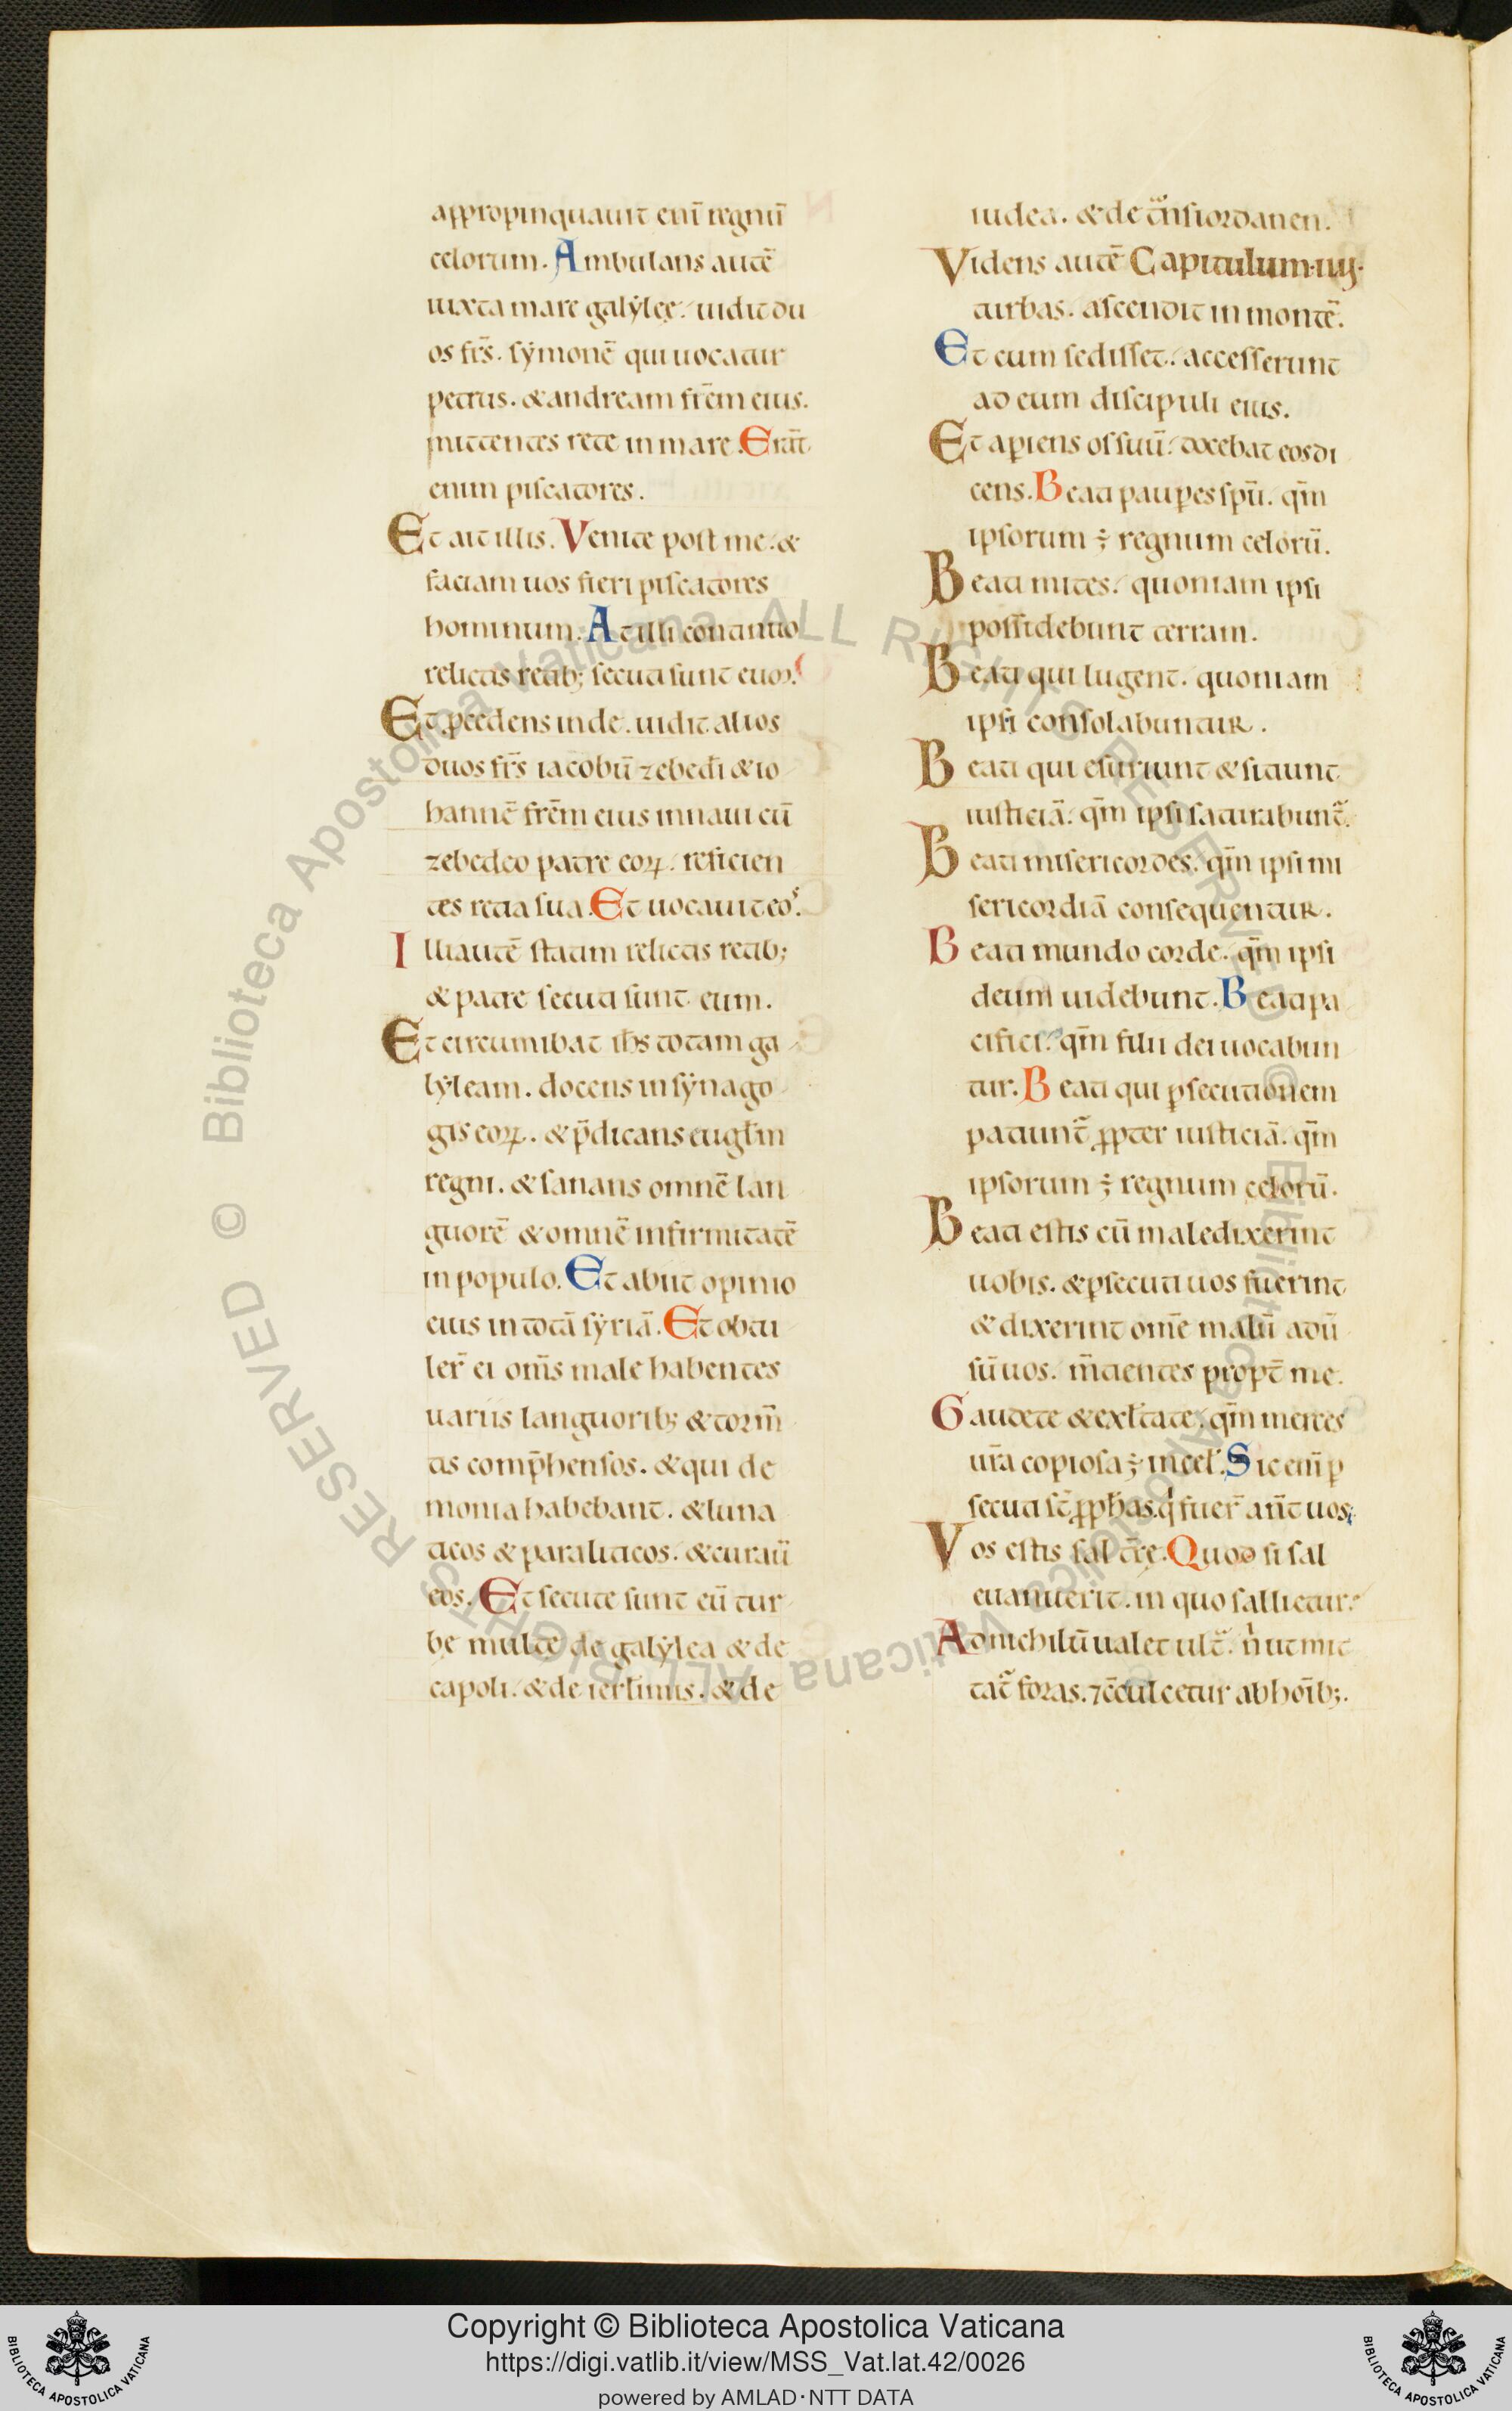 appropinquauit eni̅ regnu̅
celorum. Ambulans aute̅
iuxta mare galylee. uidit du
os fr̅s. symone̅ qui uocatur
petrus. & andream fr̅em eius.
mittentes rete in mare. Era̅t
enim piscatores.
Et ait illis. Venite post me. &
faciam uos fieri piscatores
hominum. At illi continuo
relictis retib; secuti sunt euo̅.
Et p̱cedens inde. uidit alios
duos fr̅s iacobu̅ zebedi̅ & io
hanne̅ fr̅em eius in naui cu̅
zebedeo patre eoꝝ. reficien
tes retia sua. Et uocauit eos.
Illi aute̅ statim relictis retib;
& patre secuti sunt eum.
Et circumibat ih̅s totam ga
lyleam. docens in synago
gis eoꝝ. & p̅dicans eug̅lm
regni. & sanans omne̅ lan
guore̅ & omne̅ infirmitate̅
in populo. Et abiit opinio
eius in tota̅ syria̅. Et obtu
ler̅ ei om̅s male habentes
uariis languorib; & torm̅
tis comp̅hensos. & qui de
monia habebant. & luna
ticos & paraliticos. & curaui̅
eos. Et secute sunt eu̅ tur
be multe de galylea & de
capoli. & de ierl̅imis. & de
iudea. & de t̅nsiordanen.
Videns aute̅ Capitulum.iiij.
turbas. ascendit in monte̅.
Et cum sedisset. accesserunt
ad eum discipuli eius.
Et aꝑiens os suu̅. docebat eos di
cens. Beati pauꝑes spu̅. qm̅
ipsorum ÷ regnum celoru̅.
Beati mites. quoniam ipsi
possidebunt terram.
Beati qui lugent. quoniam
ipsi consolabuntur.
Beati qui esuriunt & sitiunt
iusticia̅. qm̅ ipsi saturabunt̅.
Beati misericordes. qm̅ ipsi mi
sericordia̅ consequentur.
Beati mundo corde. qm̅ ipsi
deum uidebunt. Beati pa
cifici. qm̅ filii dei uocabun
tur. Beati qui ꝑsecutionem
patiunt̅ ꝓpter iusticia̅. qm̅
ipsorum ÷ regnum celoru̅.
Beati estis cu̅ maledixerint
uobis. & ꝑsecuti uos fuerint
& dixerint om̅e malu̅ adu̅
su̅ uos. m̅tientes propt̅ me.
Gaudete & exl̅tate. qm̅ merces
ur̅a copiosa ÷ in cel̅. Sic eni̅ ꝑ
secuti st̅ ꝓph̅as. q̇ fuer̅ an̅t uos.
Vos estis sal t̅re. Quod si sal
euanuerit. in quo sallietur.
Ad nichilu̅ ualet ult̅. n̍ ut mit
tat̅ foras. ⁊ co̅culcetur ab ho̅ib;.
Copyright © Biblioteca Apostolica Vaticana
https://digi.vatlib.it/view/MSS_Vat.lat.42/0026
powered by AMLAD·NTT DATA